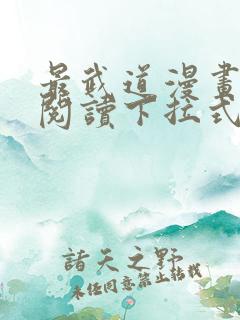 最武道漫畫
閱讀下拉式
諸天之野
未任同意禁止轉載